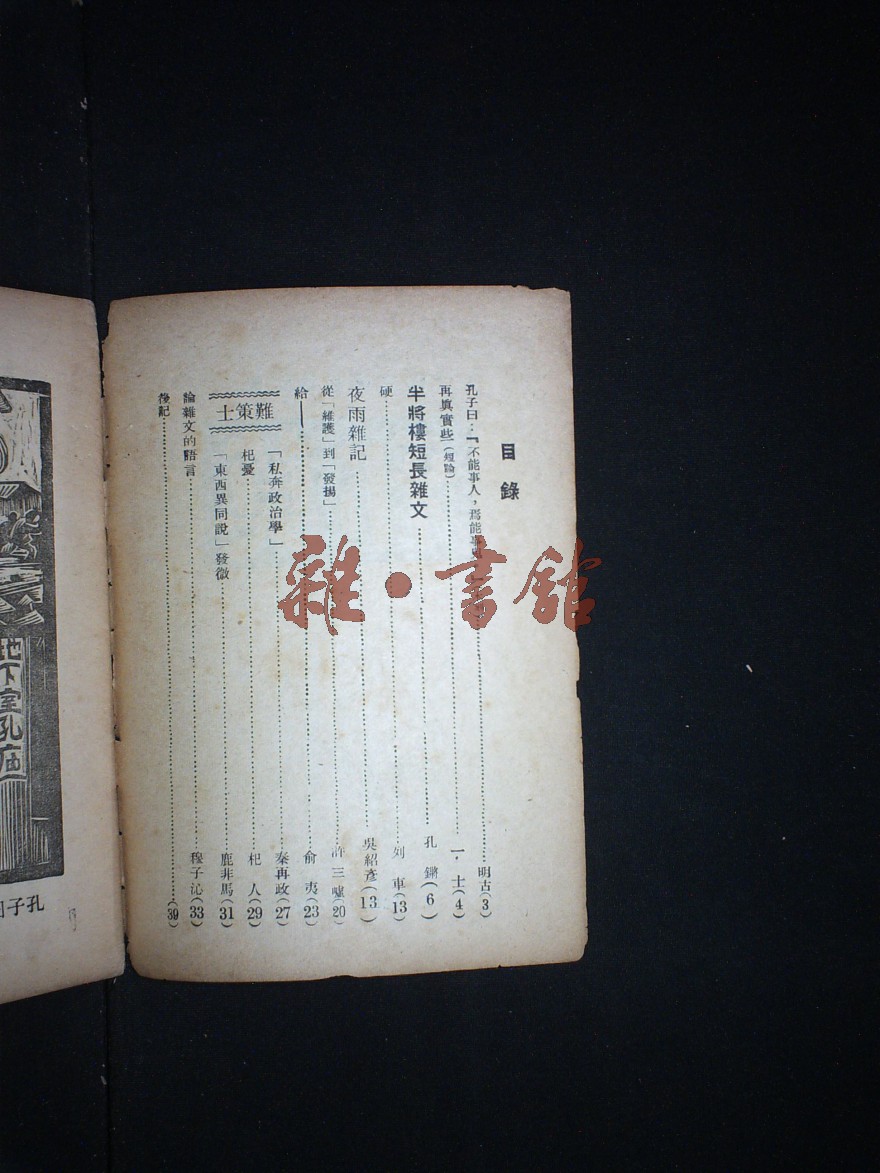 目錄
孔子曰：「不能事人，焉能事 明古(3)
再眞實些(短論) 一·士(4)
半將樓短長雜文 孔鏘(6)
硬 列車(13)
夜雨雜記 吳紹彥(13)
從「維護」到「發揚」 許三嘯(20)
給—— 俞夷(23)
難策士
「私奔政治學」 秦再政(27)
杞憂 杞人(29)
「東西異同說」發微 鹿非馬(31)
論雜文的語言 穆子沁(33)
後記 (39)
雜·書館
地下室孔庙
孔子